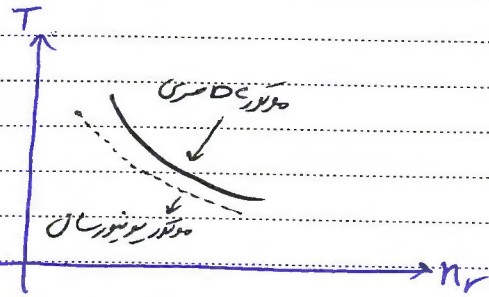 T
موتور DC سری
موتور یونیورسال
nr